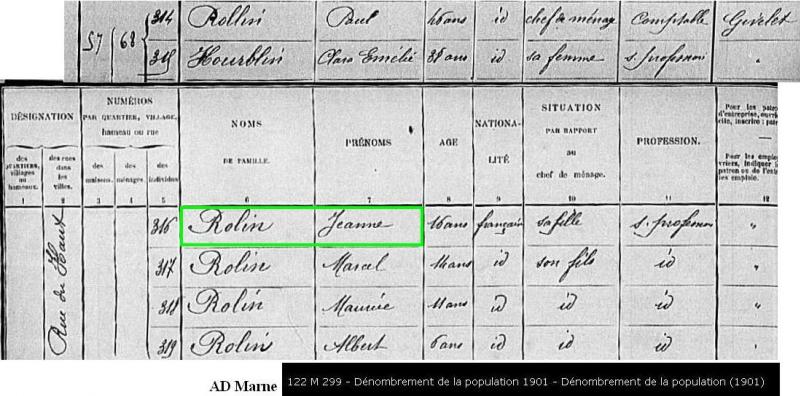 57 68 314 Rollin Paul 46 ans id chef de ménage Comptable Givelet
315 Hourblin Clara Emélie 38 ans id sa femme s. profession "
DÉSIGNATION
des QUARTIERS, villages ou hameaux.
des rues dans les villes.
NUMÉROS
PAR QUARTIER, VILLAGE, hameau ou rue
des maisons.
des ménages.
des individus
NOMS
DE FAMILLE.
PRÉNOMS
AGE
NATIONALITÉ
SITUATION
PAR RAPPORT
au
chef de ménage.
PROFESSION.
Pour les
d'entreprise,
inscrire :
Pour les
indiquer
patron ou de
1 2 3 4 5 6 7 8 9 10 11 12
Rue du Haut
316 Rolin Jeanne 16 ans française sa fille s. profession "
317 Rolin Marcel 14 ans id son fils id "
318 Rolin Maurice 11 ans id id id "
319 Rolin Albert 6 ans id id id "
AD Marne
122 M 299 - Dénombrement de la population 1901 - Dénombrement de la population (1901)